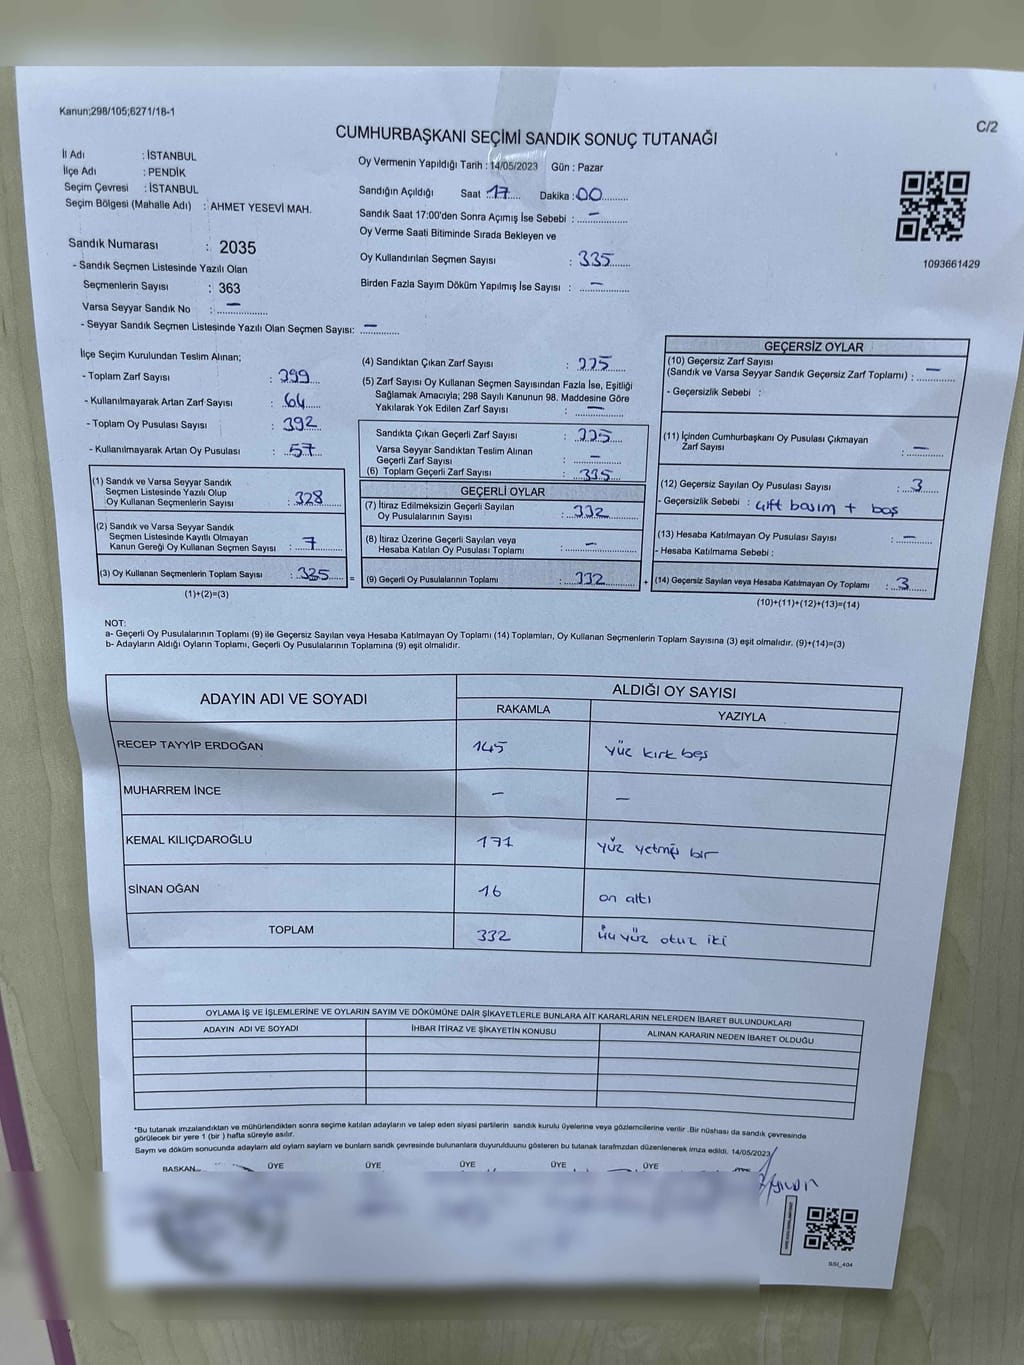 Kanun;298/105;6271/18-1
C/2
CUMHURBAŞKANI SEÇİMİ SANDIK SONUÇ TUTANAĞI
İl Adı : İSTANBUL
İlçe Adı : PENDİK
Seçim Çevresi : İSTANBUL
Seçim Bölgesi (Mahalle Adı) : AHMET YESEVİ MAH.
Oy Vermenin Yapıldığı Tarih : 14/05/2023 Gün : Pazar
Sandığın Açıldığı Saat 17 Dakika : 00
Sandık Saat 17:00'den Sonra Açımış İse Sebebi : –
Oy Verme Saati Bitiminde Sırada Bekleyen ve
Oy Kullandırılan Seçmen Sayısı : 335
Birden Fazla Sayım Döküm Yapılmış İse Sayısı : –
1093661429
Sandık Numarası : 2035
- Sandık Seçmen Listesinde Yazılı Olan
Seçmenlerin Sayısı : 363
Varsa Seyyar Sandık No : –
- Seyyar Sandık Seçmen Listesinde Yazılı Olan Seçmen Sayısı: –
İlçe Seçim Kurulundan Teslim Alınan;
- Toplam Zarf Sayısı : 399
- Kullanılmayarak Artan Zarf Sayısı : 64
- Toplam Oy Pusulası Sayısı : 392
- Kullanılmayarak Artan Oy Pusulası : 57
(1) Sandık ve Varsa Seyyar Sandık
Seçmen Listesinde Yazılı Olup
Oy Kullanan Seçmenlerin Sayısı : 328
(2) Sandık ve Varsa Seyyar Sandık
Seçmen Listesinde Kayıtlı Olmayan
Kanun Gereği Oy Kullanan Seçmen Sayısı : 7
(3) Oy Kullanan Seçmenlerin Toplam Sayısı : 335 =
(1)+(2)=(3)
(4) Sandıktan Çıkan Zarf Sayısı : 335
(5) Zarf Sayısı Oy Kullanan Seçmen Sayısından Fazla İse, Eşitliği
Sağlamak Amacıyla; 298 Sayılı Kanunun 98. Maddesine Göre
Yakılarak Yok Edilen Zarf Sayısı : –
Sandıkta Çıkan Geçerli Zarf Sayısı : 335
Varsa Seyyar Sandıktan Teslim Alınan
Geçerli Zarf Sayısı : –
(6) Toplam Geçerli Zarf Sayısı : 335
GEÇERLİ OYLAR
(7) İtiraz Edilmeksizin Geçerli Sayılan
Oy Pusulalarının Sayısı : 332
(8) İtiraz Üzerine Geçerli Sayılan veya
Hesaba Katılan Oy Pusulası Toplamı : –
(9) Geçerli Oy Pusulalarının Toplamı : 332 +
GEÇERSİZ OYLAR
(10) Geçersiz Zarf Sayısı
(Sandık ve Varsa Seyyar Sandık Geçersiz Zarf Toplamı) : –
- Geçersizlik Sebebi :
(11) İçinden Cumhurbaşkanı Oy Pusulası Çıkmayan
Zarf Sayısı : –
(12) Geçersiz Sayılan Oy Pusulası Sayısı : 3
- Geçersizlik Sebebi : çift basım + boş
(13) Hesaba Katılmayan Oy Pusulası Sayısı : –
- Hesaba Katılmama Sebebi :
(14) Geçersiz Sayılan veya Hesaba Katılmayan Oy Toplamı : 3
(10)+(11)+(12)+(13)=(14)
NOT:
a- Geçerli Oy Pusulalarının Toplamı (9) ile Geçersiz Sayılan veya Hesaba Katılmayan Oy Toplamı (14) Toplamları, Oy Kullanan Seçmenlerin Toplam Sayısına (3) eşit olmalıdır. (9)+(14)=(3)
b- Adayların Aldığı Oyların Toplamı, Geçerli Oy Pusulalarının Toplamına (9) eşit olmalıdır.
ADAYIN ADI VE SOYADI
ALDIĞI OY SAYISI
RAKAMLA YAZIYLA
RECEP TAYYİP ERDOĞAN 145 yüz kırk beş
MUHARREM İNCE – –
KEMAL KILIÇDAROĞLU 171 yüz yetmiş bir
SİNAN OĞAN 16 on altı
TOPLAM 332 üç yüz otuz iki
OYLAMA İŞ VE İŞLEMLERİNE VE OYLARIN SAYIM VE DÖKÜMÜNE DAİR ŞİKAYETLERLE BUNLARA AİT KARARLARIN NELERDEN İBARET BULUNDUKLARI
ADAYIN ADI VE SOYADI İHBAR İTİRAZ VE ŞİKAYETİN KONUSU ALINAN KARARIN NEDEN İBARET OLDUĞU
*Bu tutanak imzalandıktan ve mühürlendikten sonra seçime katılan adayların ve talep eden siyasi partilerin sandık kurulu üyelerine veya gözlemcilerine verilir .Bir nüshası da sandık çevresinde
görülecek bir yere 1 (bir ) hafta süreyle asılır.
Sayım ve döküm sonucunda adayların ald oyların sayların ve bunların sandk çevresinde bulunanlara duyurulduunu gösteren bu tutanak tarafmızdan düzenlenerek imza edildi. 14/05/2023
BAŞKAN ÜYE ÜYE ÜYE ÜYE ÜYE
SSI_404